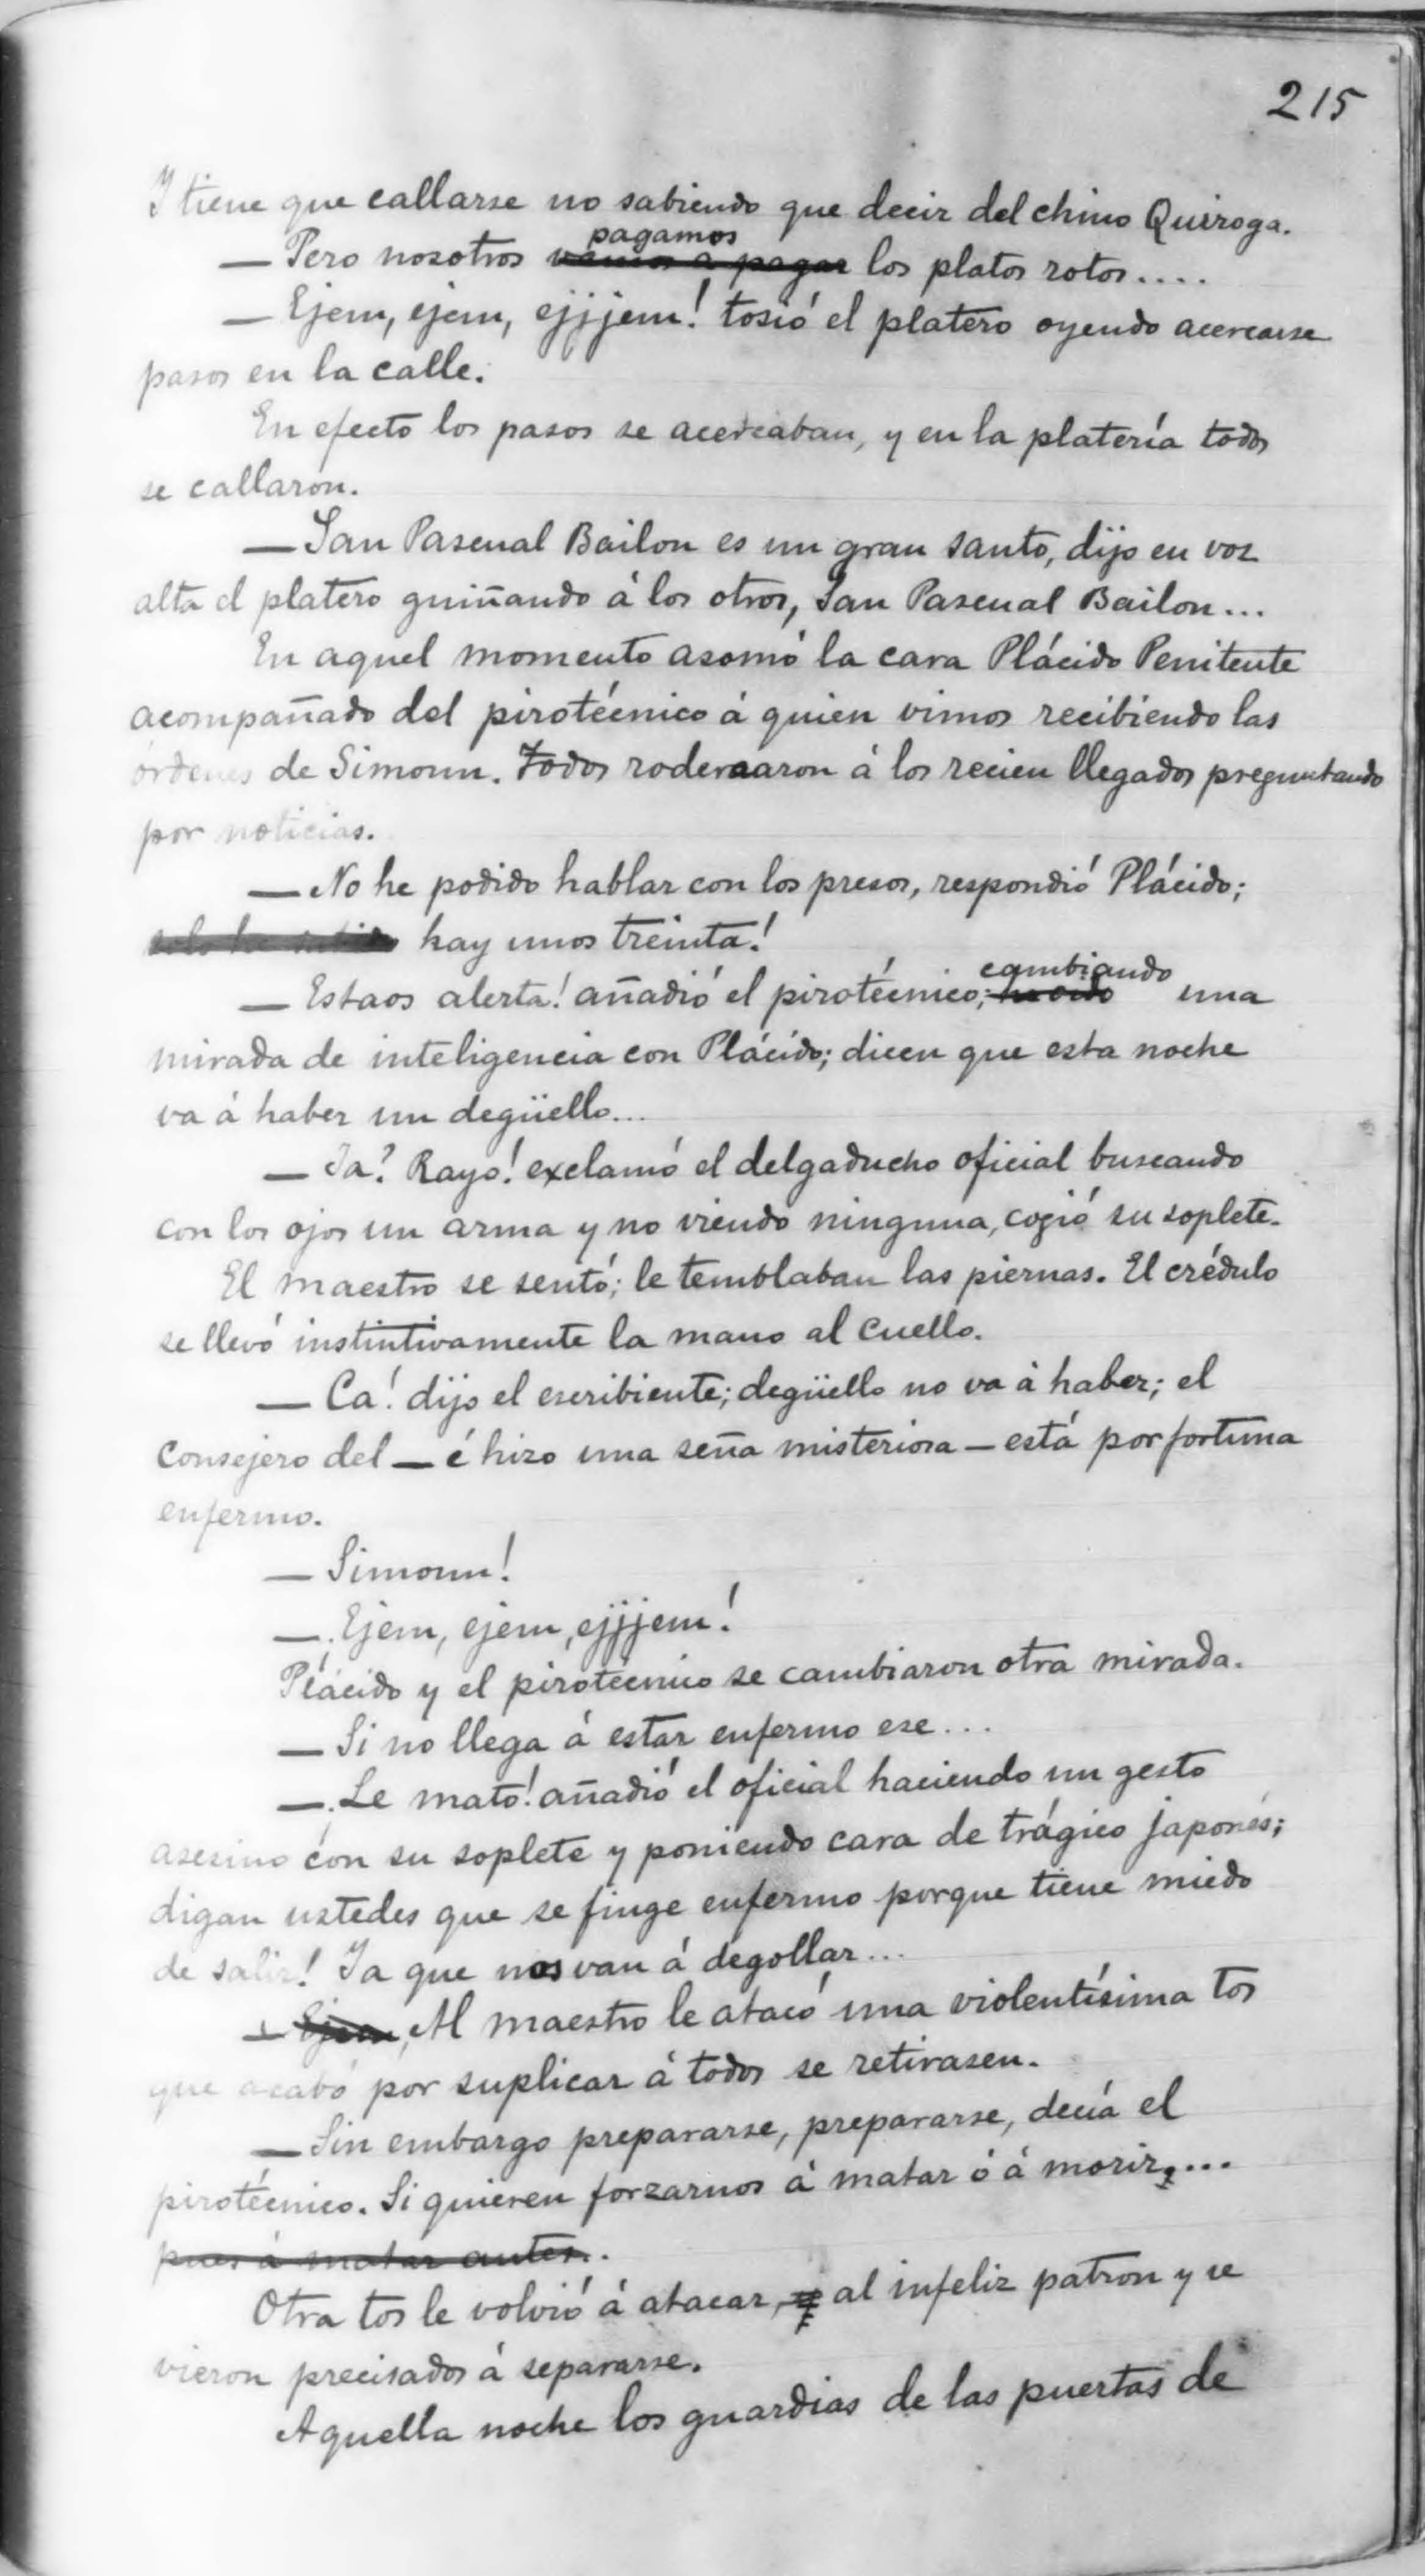 215
Y tiene que callarse no sabiendo que decir del chino Quiroga.
pagamos
— Pero nosotros vamos a pagar los platos rotos....
— Ejem, ejem, ejjjem! tosió el platero oyendo acercarse
pasos en la calle.
En efecto los pasos se acercaban, y en la platería todos
se callaron.
— San Pascual Bailon es un gran santo, dijo en voz
alta el platero guiñando á los otros, San Pascual Bailon...
En aquel momento asomó la cara Plácido Penitente
acompañado del pirotécnico á quien vimos recibiendo las
órdenes de Simoun. Todos rodearon á los recien llegados preguntando
por noticias.
— No he podido hablar con los presos, respondió Plácido;
solo he sabido hay unos treinta!
cambiando
— Estaos alerta! añadió el pirotécnico; una
mirada de inteligencia con Plácido; dicen que esta noche
va á haber un degüello...
— Ja? Rayo! exclamó el delgaducho oficial buscando
con los ojos un arma y no viendo ninguna, cogió su soplete.
El maestro se sentó; le temblaban las piernas. El crédulo
se llevó instintivamente la mano al cuello.
— Ca! dijo el escribiente; degüello no va á haber; el
consejero del — é hizo una seña misteriosa — está por fortuna
enfermo.
— Simoun!
— Ejem, ejem, ejjjem!
Plácido y el pirotécnico se cambiaron otra mirada.
— Si no llega á estar enfermo ese...
— Le mato! añadió el oficial haciendo un gesto
asesino con su soplete y poniendo cara de trágico japonés;
digan ustedes que se finge enfermo porque tiene miedo
de salir! Ya que nos van á degollar...
— Ejem, Al maestro le atacó una violentísima tos
que acabó por suplicar á todos se retirasen.
— Sin embargo prepararse, prepararse, decía el
pirotécnico. Si quieren forzarnos á matar ó á morir,...
pues á matar antes..
Otra tos le volvió á atacar, al infeliz patron y se
vieron precisados á separarse.
Aquella noche los guardias de las puertas de